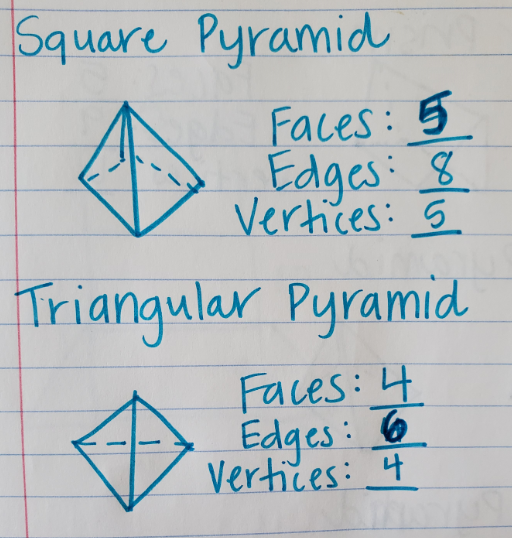 Square Pyramid
Faces: 5
Edges: 8
Vertices: 5
Triangular Pyramid
Faces: 4
Edges: 6
Vertices: 4